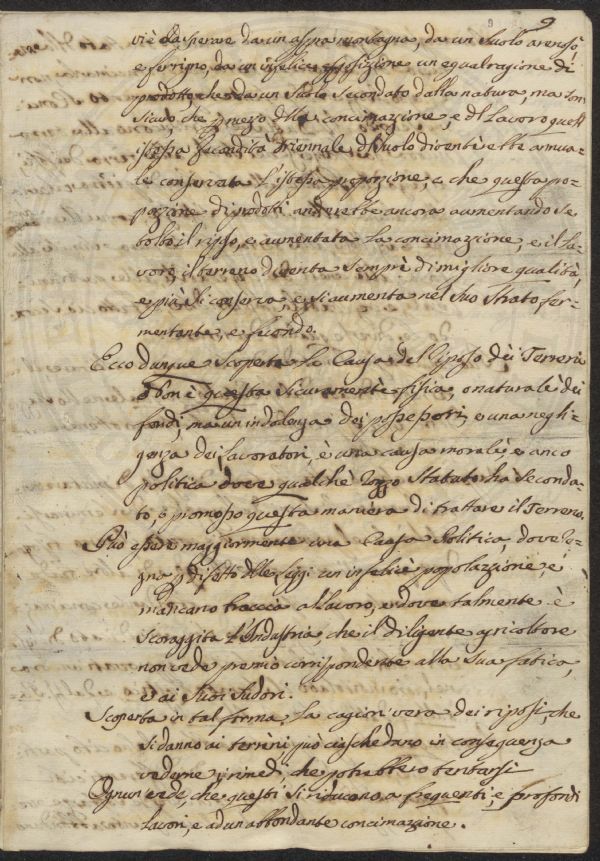 9
vi è da sperare da un aspra montagna, da un Suolo arenoso,
e ferrigno, da un infelice esposizione un egual ragione di
prodotti, che da un Suolo secondato dalla natura, ma con-
sicudo, che p mezo della concimazione, e del Lavoro quest
istessa fecondità triennale del Suolo diventerebbe annua-
le conservata l'istessa proporzione, e che questa pro-
porzione di prodotti anderebbe ancora aumentando se
tolto il riposo, e aumentata la concimazione, e il la-
voro, il terreno diventa sempre di migliore qualità,
e più si conserva, e si aumenta nel suo Strato fer-
mentante, e fecondo.
Ecco dunque scoperta la Causa del Riposo dei Terreni
Non è questa sicuramente fisica, o naturale dei
fondi, ma un indolenza dei possessori, e una negli-
genza dei lavoratori, è una causa morale, e anco
politica dove qualche rozzo Statuto ha seconda-
to, o promosso questa maniera di trattare il Terreno.
Può essere maggiormente una Causa Politica, dove re-
gna p difetto delle Leggi un infelice popolazione, e
mancano braccia al lavoro, e dove talmente è
scoraggita l'Industria, che il diligente agricoltore
non vede premio corrispondente alla sua fatica,
e ai suoi sudori.
Scoperta in tal forma la cagion vera dei riposi, che
si danno ai terreni può ciascheduno in conseguenza
vederne i rimedj, che potrebbero tentarsi
Ognun vede, che questi si riducono a frequenti, e profondi
lavori, e ad un abbondante concimazione.